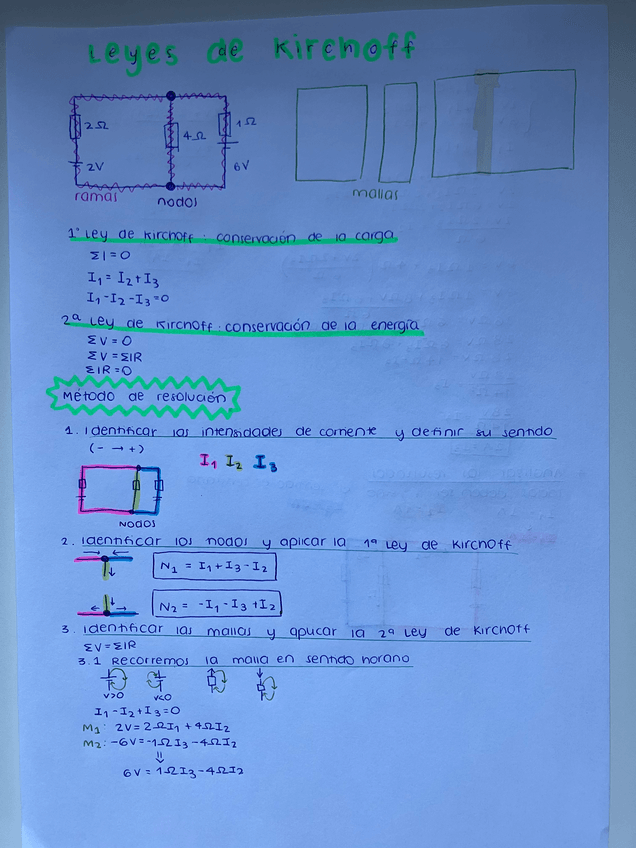 Leyes de Kirchoff
2Ω
4Ω
1Ω
2V
6V
ramas
nodos
mallas
1ª Ley de Kirchoff: conservación de la carga
ΣI=0
I₁ = I₂+I₃
I₁-I₂-I₃=0
2ª Ley de Kirchoff: conservación de la energía
ΣV=0
ΣV=ΣIR
ΣIR=0
Método de resolución
1. Identificar las intensidades de corriente y definir su sentido
(- → +)
I₁ I₂ I₃
NODOS
2. Identificar los nodos y aplicar la 1ª Ley de Kirchoff
N₁ = I₁+I₃-I₂
N₂ = -I₁-I₃+I₂
3. Identificar las mallas y aplicar la 2ª Ley de Kirchoff
ΣV=ΣIR
3.1 Recorremos la malla en sentido horario
V>0
V<0
I₁-I₂+I₃=0
M₁: 2V=2ΩI₁+4ΩI₂
M₂: -6V=-1ΩI₃-4ΩI₂
⇓
6V=1ΩI₃-4ΩI₂